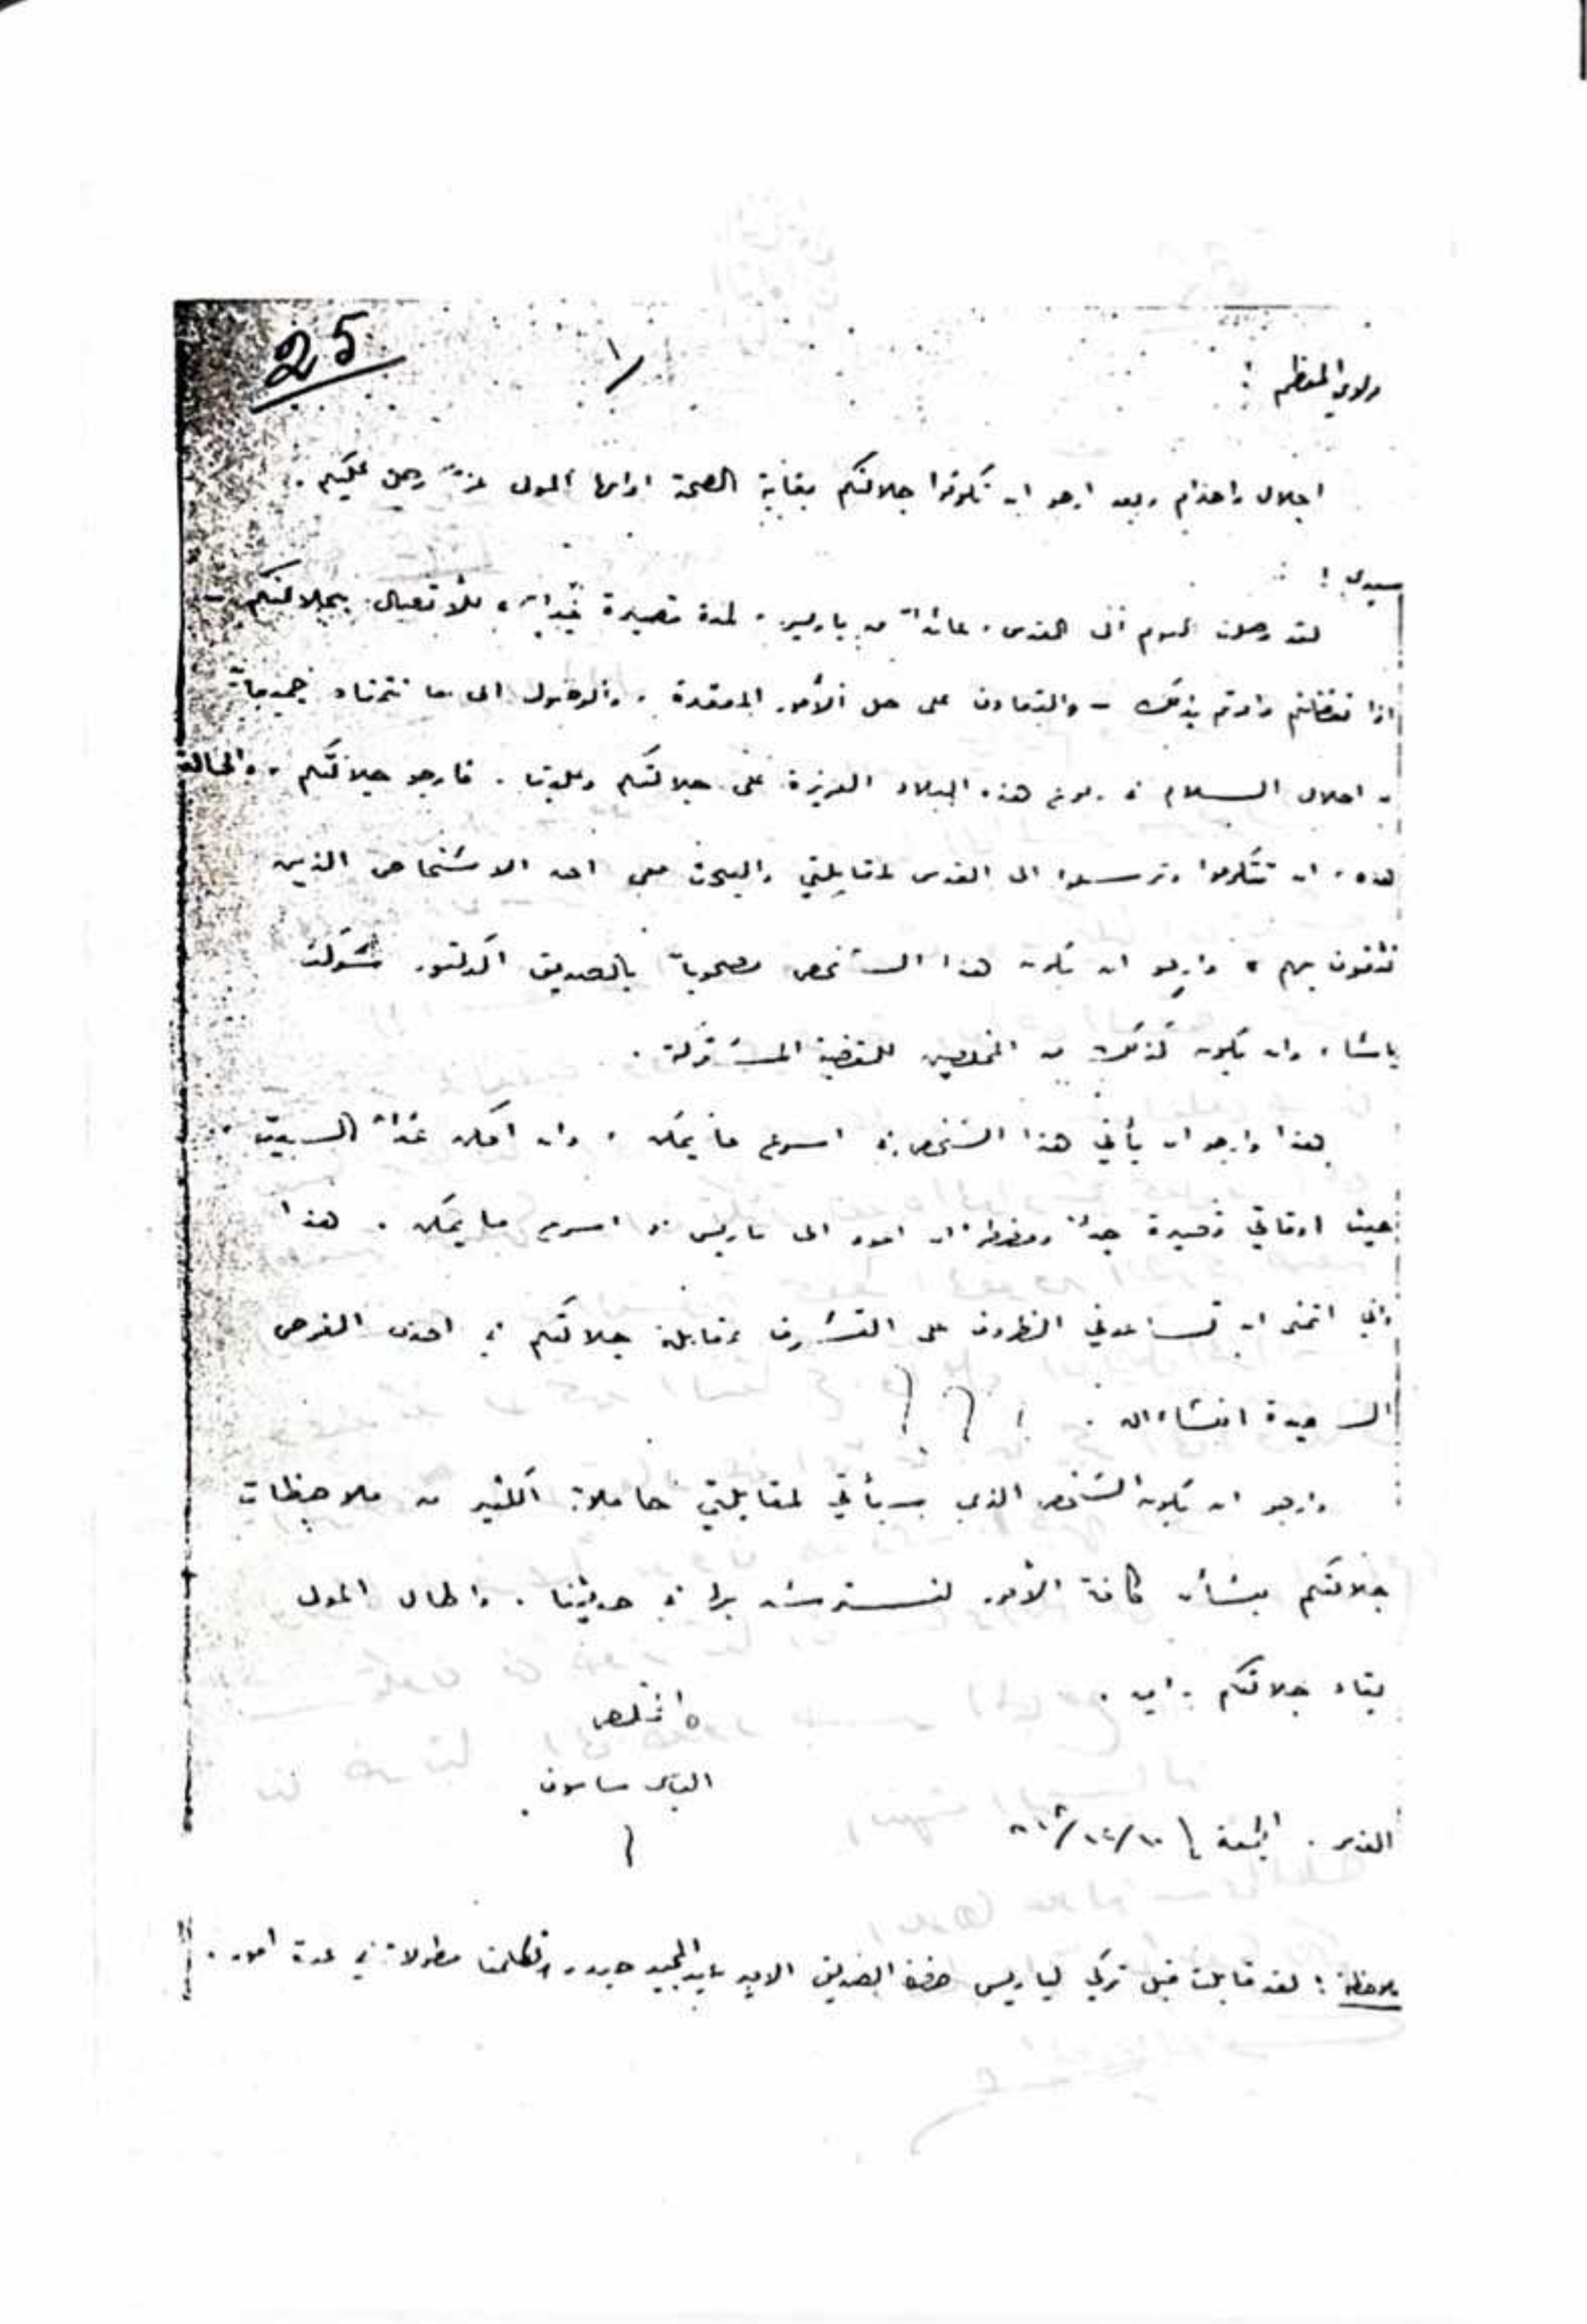 25
١/
مولاي المعظم :
اجلال واحترام وبعد ارجو ان تكونوا جلالتكم بغاية الصحة ادامها المولى عزّ وجل عليكم .
سيدي !
لقد وصلت اليوم الى القدس، عائداً من باريس، لمدة قصيرة جداً، للاتصال بجلالتكم –
اذا تفضلتم وامرتم بذلك – والتعاون على حل الأمور المعقدة . والوصول الى ما نتمناه جميعاً
احلال السلام في ربوع هذه البلاد العزيزة على جلالتكم وعلينا . فارجو جلالتكم ، والحالة
هذه ، ان تتكرموا وترسلوا الى القدس لمقابلتي والبحث معي احد الاشخاص الذين
تثقون بهم ، وارجو ان يكون هذا الشخص مصحوباً بالصديق الدكتور شوكت
باشا، وان يكون كذلك من المخلصين للقضية المشتركة .
هذا وارجو ان يأتي هذا الشخص في اسرع ما يمكن ، وان امكن غداً السبت .
حيث اوقاتي قصيرة جداً ومضطر ان اعود الى باريس في اسرع ما يمكن . هذا
واني اتمنى ان تساعدني الظروف على التشرف بمقابلة جلالتكم في احدى الفرص
السعيدة انشاء الله .
وارجو ان يكون الشخص الذي سيأتي لمقابلتي حاملاً الكثير من ملاحظات
جلالتكم بشأن كافة الأمور لنسترشد بها في حديثنا . واطال المولى
بقاء جلالتكم . امين .
المخلص
الياس ساسون
القدس . الجمعة ١٠/١٢/
ملاحظة : لقد قابلت قبل تركي لباريس حضرة الصديق الامير عبد المجيد حيدر وتكلمنا مطولاً في عدة امور .